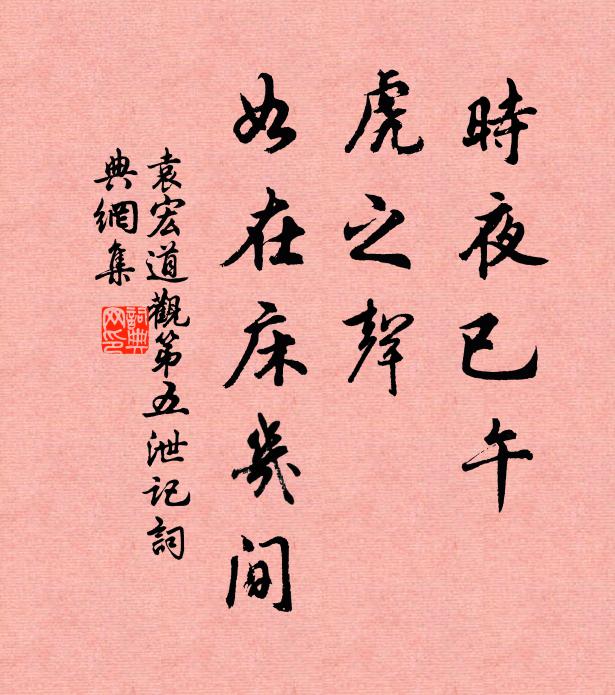 時夜已午
虎之聲
如在床几間
袁宏道觀第五泄記詞
典網集
詞典
网印